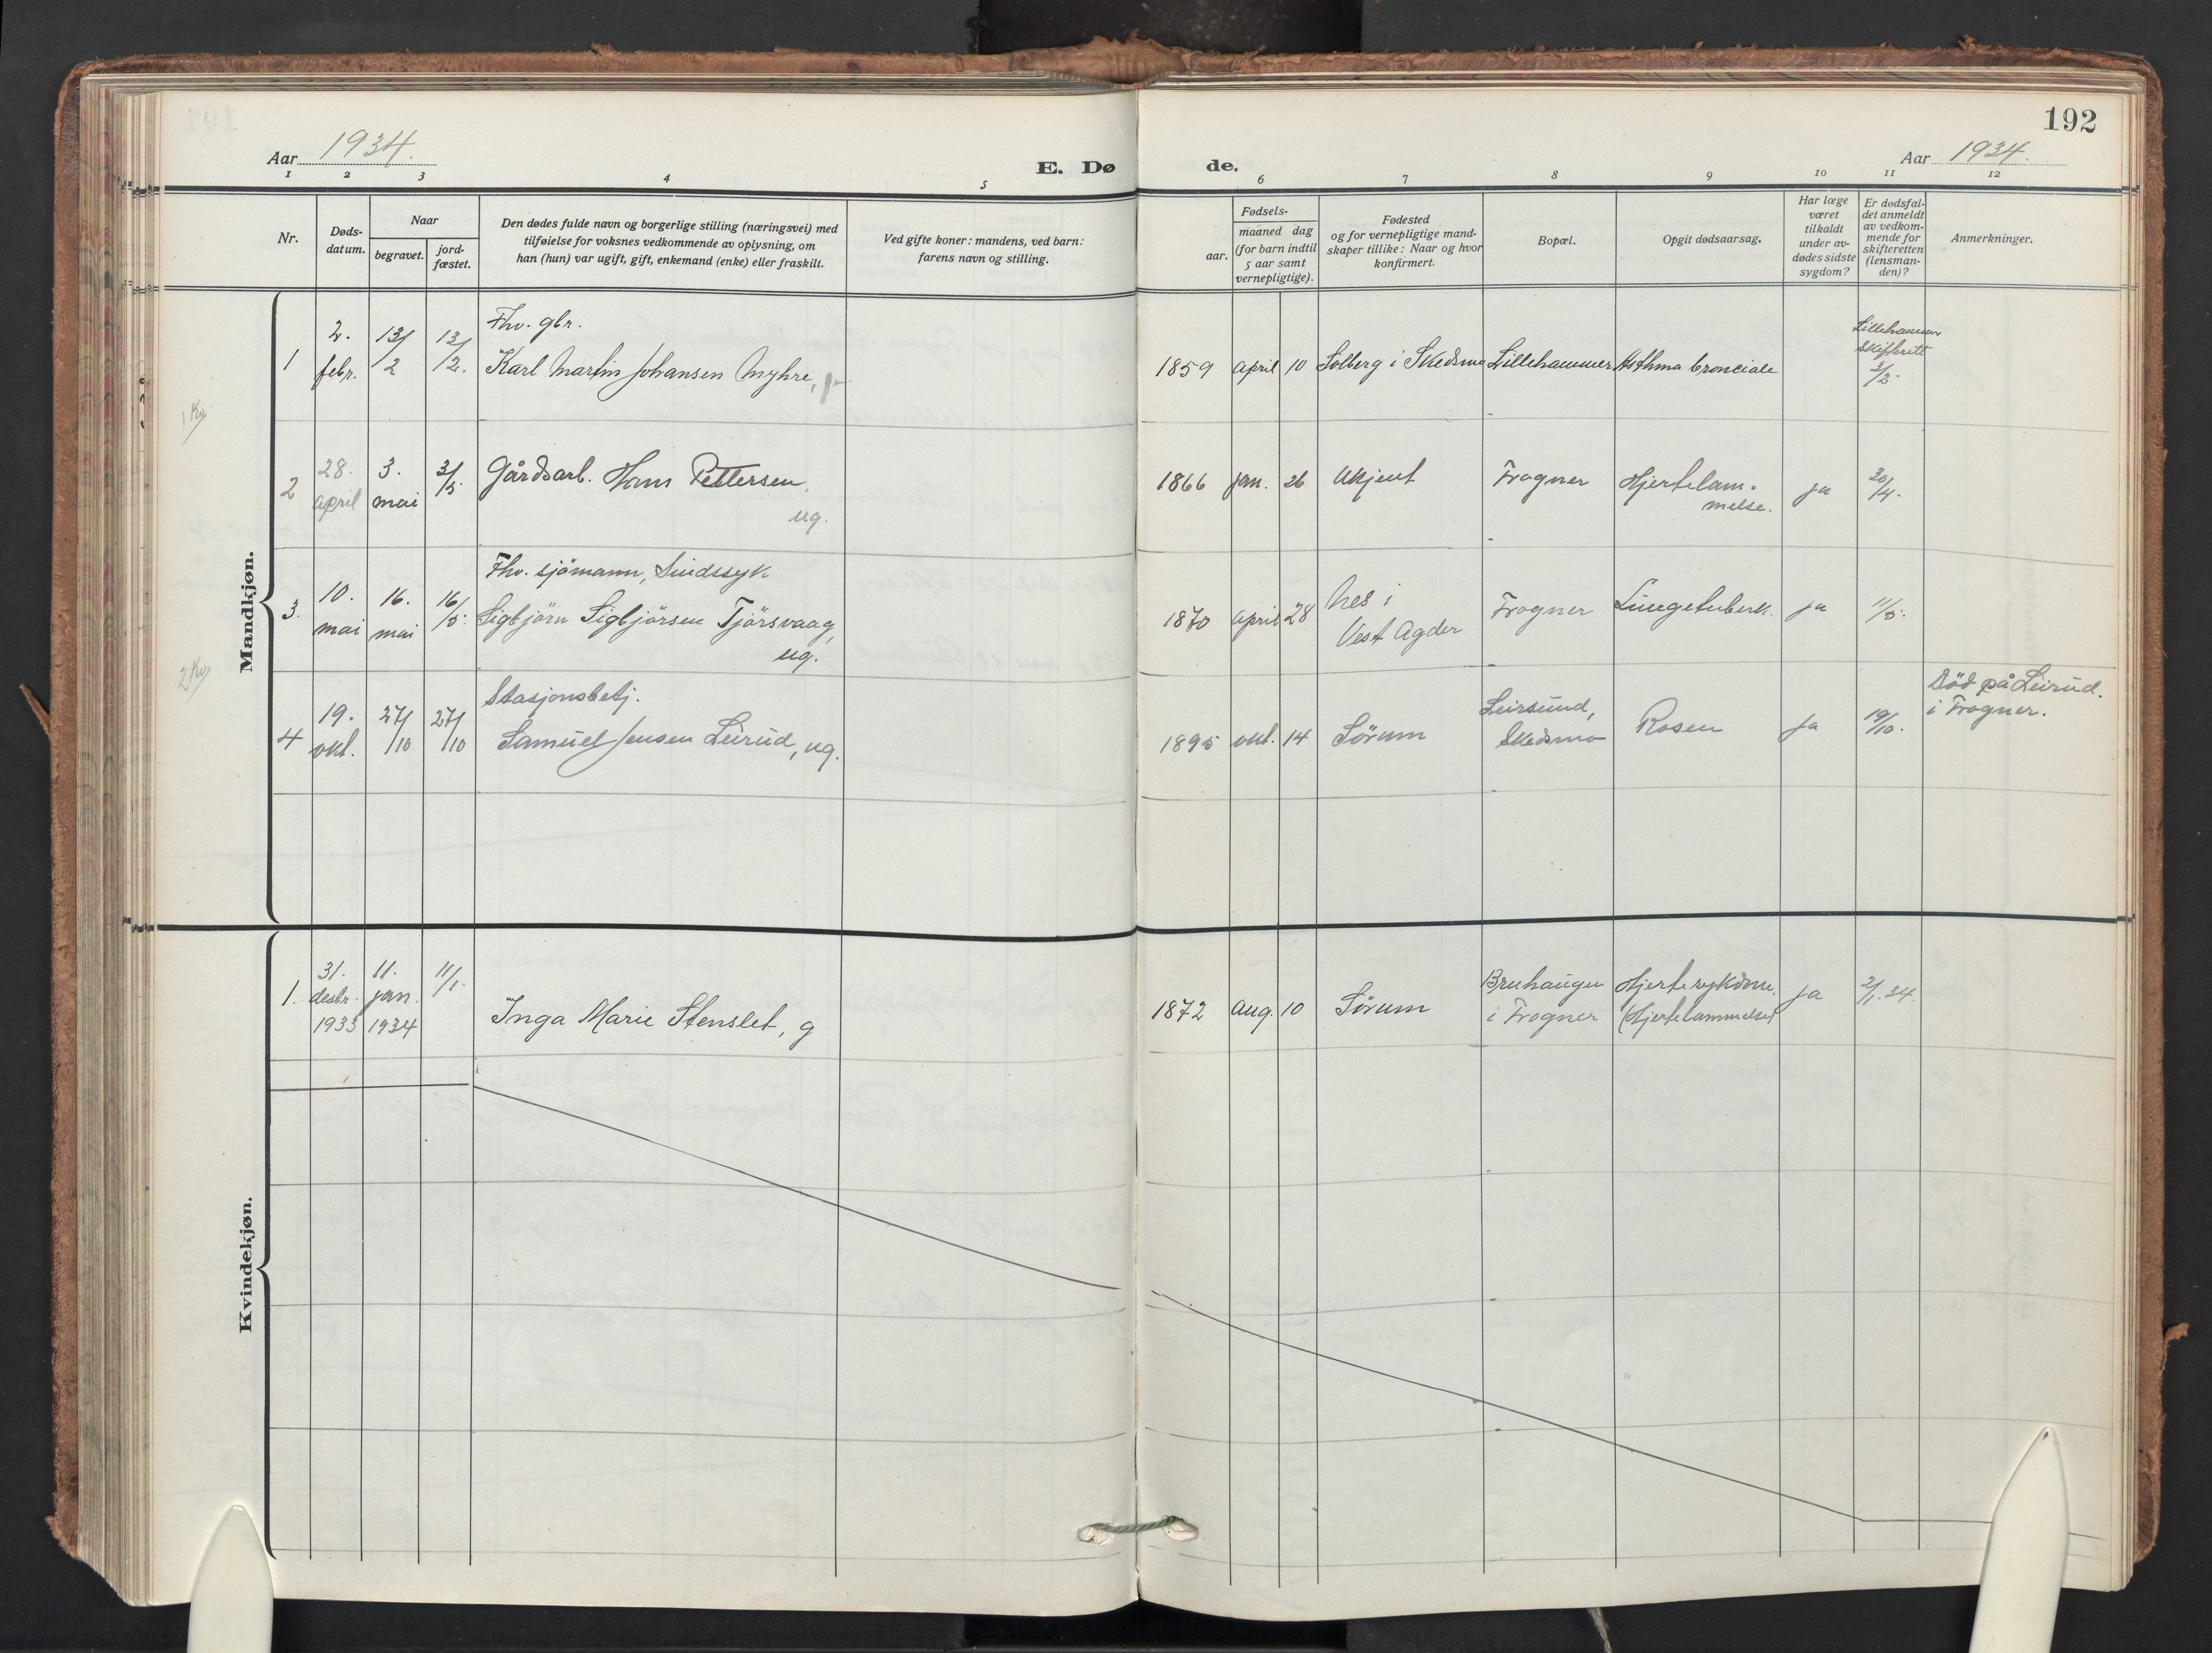 192
Aar 1934.
E. Dø
de.
Aar 1934.
1 2 3 4 5 6 7 8 9 10 11 12
Nr.
Døds-
datum.
Naar
begravet.
jord-
fæstet.
Den dødes fulde navn og borgerlige stilling (næringsvei) med
tilføielse for voksnes vedkommende av oplysning, om
han (hun) var ugift, gift, enkemand (enke) eller fraskilt.
Ved gifte koner: mandens, ved barn:
farens navn og stilling.
Fødsels-
aar.
maaned dag
(for barn indtil
5 aar samt
vernepligtige).
Fødested
og for vernepligtige mand-
skaper tillike: Naar og hvor
konfirmert.
Bopæl.
Opgit dødsaarsag.
Har læge
været
tilkaldt
under av-
dødes sidste
sygdom?
Er dødsfal-
det anmeldt
av vedkom-
mende for
skifteretten
(lensman-
den)?
Anmerkninger.
Mandkjøn.
1
2.
febr.
13/
2
13/
2.
Fhv. gbr.
Karl Martin Johansen Myhre,
1859 april 10 Solberg i Skedsmo Lillehammer Asthma bronciale
Lillehammer
Skifterett
3/2.
1 Kv
2
28.
april
3.
mai
3/5
Gårdsarb. Hans Pettersen,
ug.
1866 jan. 26 Ukjent Frogner Hjertelam-
melse.
ja
30/4.
3.
10.
mai
16.
mai
16/5.
Fhv. sjömann, Sindssyk
Sigbjörn Sigbjörsen Tjörsvaag,
ug.
1870 april 28 Nes i
Vest Agder
Frogner Lungetuberk. ja 11/5.
2 Kv
4
19.
okt.
27/
10
27/
10
Stasjonsbetj.
Samuel Jensen Leirud, ug.
1895 okt. 14 Sörum
Leirsund,
Skedsmo
Rosen ja 19/10.
Död på Leirud.
i Frogner.
Kvindekjøn.
1.
31.
desbr.
1933
11.
jan.
1934
11/1.
Inga Marie Stenslet, g
1872 aug. 10 Sörum
Bruhaugen
i Frogner
Hjertesykdom.
(Hjertelammelse)
ja 2/1.34.